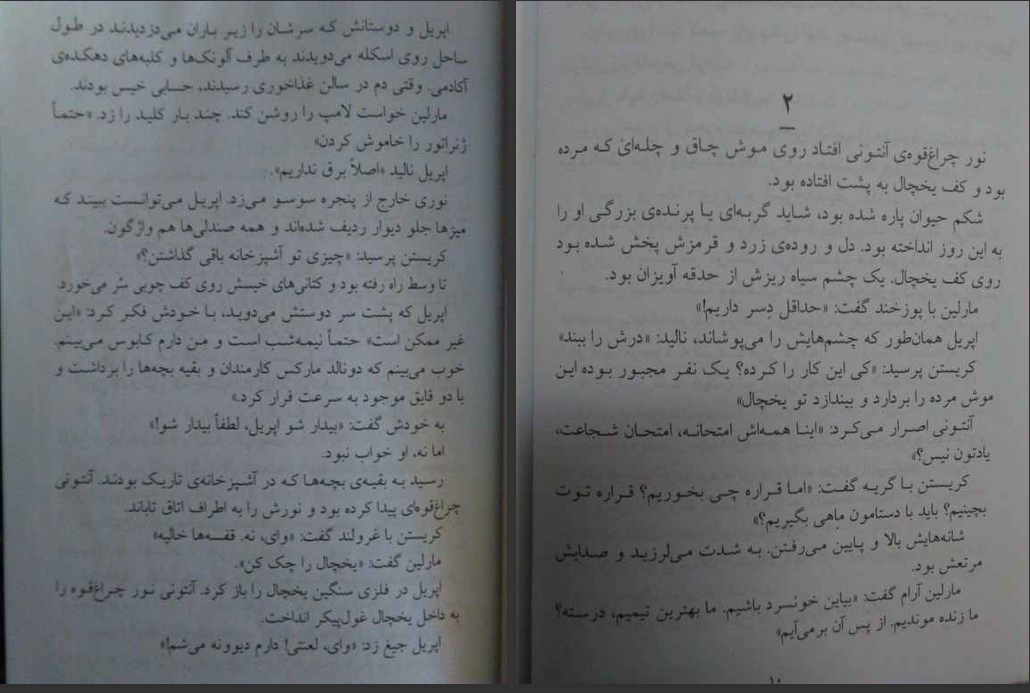 اپریل و دوستانش که سرشان را زیر باران می‌دزدیدند در طول
ساحل روی اسکله می‌دویدند به طرف آلونک‌ها و کلبه‌های دهکده‌ی
آکادمی. وقتی دم در سالن غذاخوری رسیدند، حسابی خیس بودند.
مارلین خواست لامپ را روشن کند. چند بار کلید را زد. «حتماً
ژنراتور را خاموش کردن»
اپریل نالید «اصلاً برق نداریم».
نوری خارج از پنجره سوسو می‌زد. اپریل می‌توانست ببیند که
میزها جلو دیوار ردیف شده‌اند و همه صندلی‌ها هم واژگون.
کریستن پرسید: «چیزی تو آشپزخانه باقی گذاشتن؟»
تا وسط راه رفته بود و کتانی‌های خیسش روی کف چوبی سُر می‌خورد.
اپریل که پشت سر دوستش می‌دوید، با خودش فکر کرد: «این
غیر ممکن است» حتماً نیمه‌شب است و من دارم کابوس می‌بینم.
خوب می‌بینم که دونالد مارکس کارمندان و بقیه بچه‌ها را برداشت و
با دو قایق موجود به سرعت فرار کرد.»
به خودش گفت: «بیدار شو اپریل، لطفاً بیدار شو!»
اما نه، او خواب نبود.
رسید به بقیه‌ی بچه‌ها که در آشپزخانه‌ی تاریک بودند. آنتونی
چراغ‌قوه‌ای پیدا کرده بود و نورش را به اطراف اتاق تاباند.
کریستن با غرولند گفت: «وای، نه. قفسه‌ها خالیه»
مارلین گفت: «یخچال را چک کن».
اپریل در فلزی سنگین یخچال را باز کرد. آنتونی نور چراغ‌قوه را
به داخل یخچال غول‌پیکر انداخت.
اپریل جیغ زد: «وای، لعنتی! دارم دیوونه می‌شم!»
۲
نور چراغ‌قوه‌ی آنتونی افتاد روی موش چاق و چله‌ای که مرده
بود و کف یخچال به پشت افتاده بود.
شکم حیوان پاره شده بود، شاید گربه‌ای یا پرنده‌ی بزرگی او را
به این روز انداخته بود. دل و روده‌ی زرد و قرمزش پخش شده بود
روی کف یخچال. یک چشم سیاه ریزش از حدقه آویزان بود.
مارلین با پوزخند گفت: «حداقل دِسر داریم!»
اپریل همان‌طور که چشم‌هایش را می‌پوشاند، نالید: «درش را ببند»
کریستن پرسید: «کی این کار را کرده؟ یک نفر مجبور بوده این
موش مرده را بردارد و بیندازد تو یخچال»
آنتونی اصرار می‌کرد: «اینا همه‌اش امتحانه، امتحان شجاعت،
یادتون نیس؟»
کریستن با گریه گفت: «اما قراره چی بخوریم؟ قراره توت
بچینیم؟ باید با دستامون ماهی بگیریم؟»
شانه‌هایش بالا و پایین می‌رفتن. به شدت می‌لرزید و صدایش
مرتعش بود.
مارلین آرام گفت: «بیاین خونسرد باشیم. ما بهترین تیمیم، درسته؟
ما زنده موندیم. از پس آن برمی‌آیم»